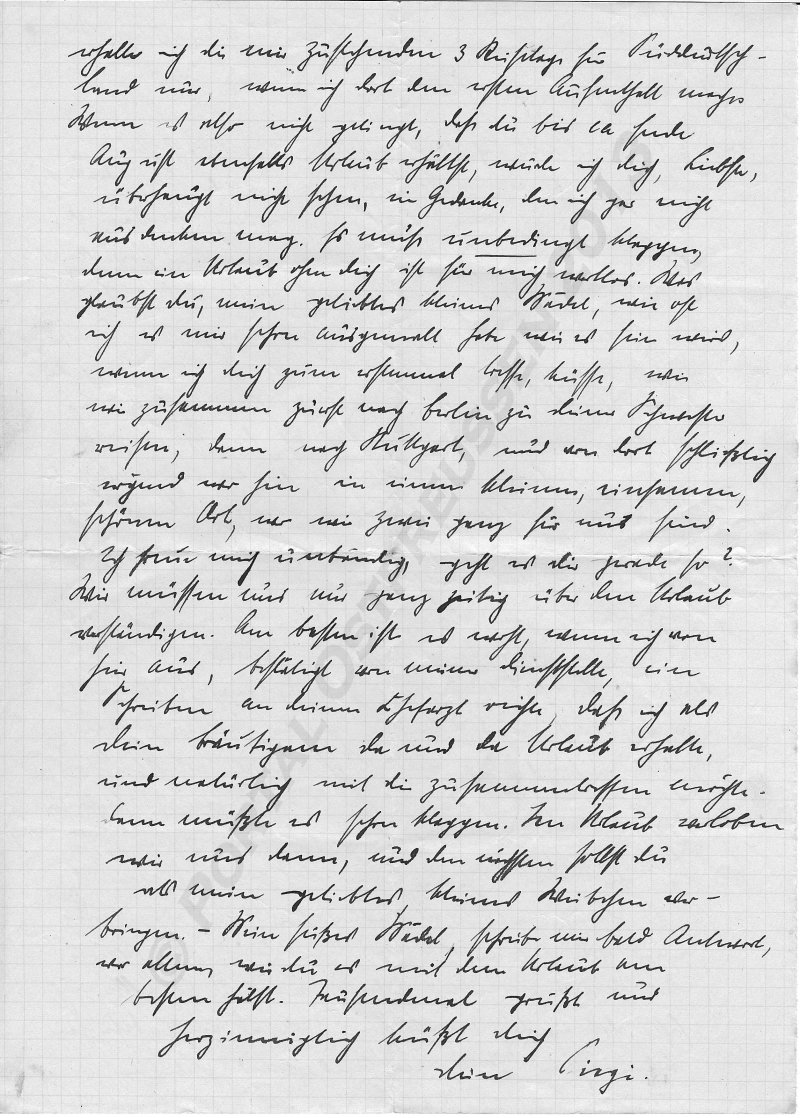 erhalte ich die mir zustehenden 3 Reisetage für Süddeutsch-
land nur, wenn ich dort den ersten Aufenthalt mache.
Wenn es also nicht gelingt, daß du bis ca Ende
August ebenfalls Urlaub erhältst, würde ich dich, Liebste,
überhaupt nicht sehen, ein Gedanke, den ich gar nicht
ausdenken mag. Es muß unbedingt klappen,
denn ein Urlaub ohne dich ist für mich wertlos. Was
glaubst du, mein geliebtes kleines Mädel, wie oft
ich es mir schon ausgemalt habe wie es sein wird,
wenn ich dich zum erstenmal treffe, küsse, wie
wir zusammen zuerst nach Berlin zu deiner Schwester
reisen, dann nach Stuttgart, und von dort schließlich
irgend wo hin in einen kleinen, einsamen,
schönen Ort, wo wir zwei ganz für uns sind.
Ich freue mich unbändig, geht es dir gerade so?
Wir müssen uns nur ganz zeitig über den Urlaub
verständigen. Am besten ist es wohl, wenn ich von
hier aus, bestätigt von meiner Dienststelle, ein
Schreiben an deinen Chefarzt richte, daß ich als
dein Bräutigam da und da Urlaub erhalte,
und natürlich mit dir zusammentreffen möchte.
Dann müßte es schon klappen. Im Urlaub verloben
wir uns dann, und den nächsten sollst du
als mein geliebtes, kleines Weibchen ver-
bringen. - Mein süßes Mädel, schreibe mir bald Antwort,
vor allem, wie du es mit dem Urlaub am
besten hälst. Tausendmal grüßt und
herzinniglich küßt dich
dein
© PORTAL OSTPREUSSEN 2015